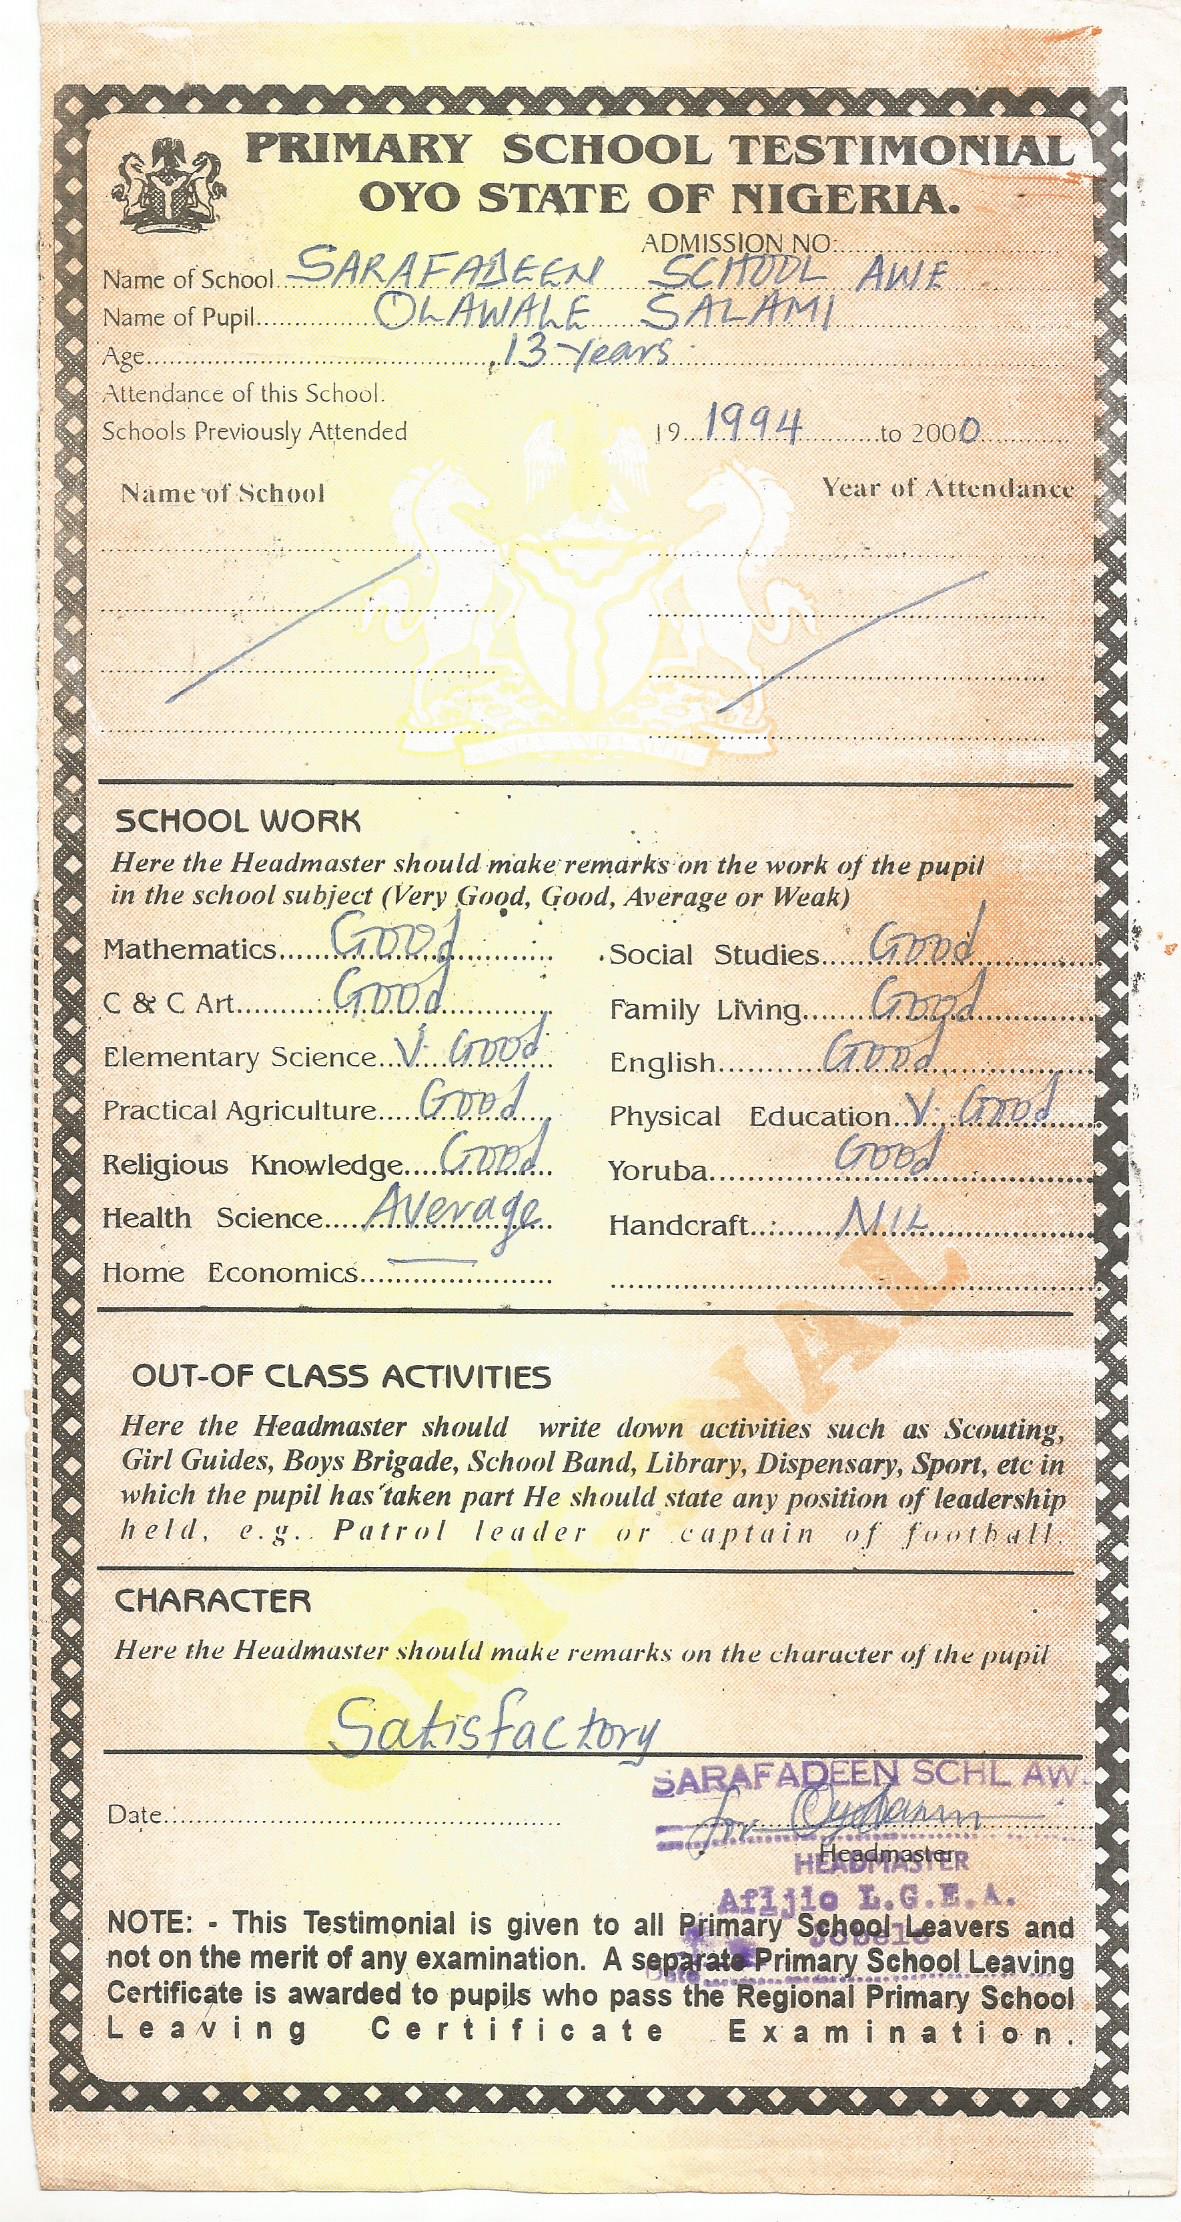 PRIMARY SCHOOL TESTIMONIAL
OYO STATE OF NIGERIA.
ADMISSION NO:
Name of School SARAFADEEN SCHOOL AWE
Name of Pupil OLAWALE SALAMI
Age 13 years
Attendance of this School.
Schools Previously Attended 19 1994 to 2000
Name of School Year of Attendance
SCHOOL WORK
Here the Headmaster should make remarks on the work of the pupil
in the school subject (Very Good, Good, Average or Weak)
Mathematics Good Social Studies Good
C & C Art Good Family Living Good
Elementary Science V. Good English Good
Practical Agriculture Good Physical Education V. Good
Religious Knowledge Good Yoruba Good
Health Science Average Handcraft NIL
Home Economics
ORIGINAL
OUT-OF CLASS ACTIVITIES
Here the Headmaster should write down activities such as Scouting,
Girl Guides, Boys Brigade, School Band, Library, Dispensary, Sport, etc in
which the pupil has taken part He should state any position of leadership
held, e.g. Patrol leader or captain of football.
CHARACTER
Here the Headmaster should make remarks on the character of the pupil
Satisfactory
SARAFADEEN SCHL AW.
Date for
Headmaster
HEADMASTER
Afijio L.G.E.A.
Date
NOTE: - This Testimonial is given to all Primary School Leavers and
not on the merit of any examination. A separate Primary School Leaving
Certificate is awarded to pupils who pass the Regional Primary School
Leaving Certificate Examination.